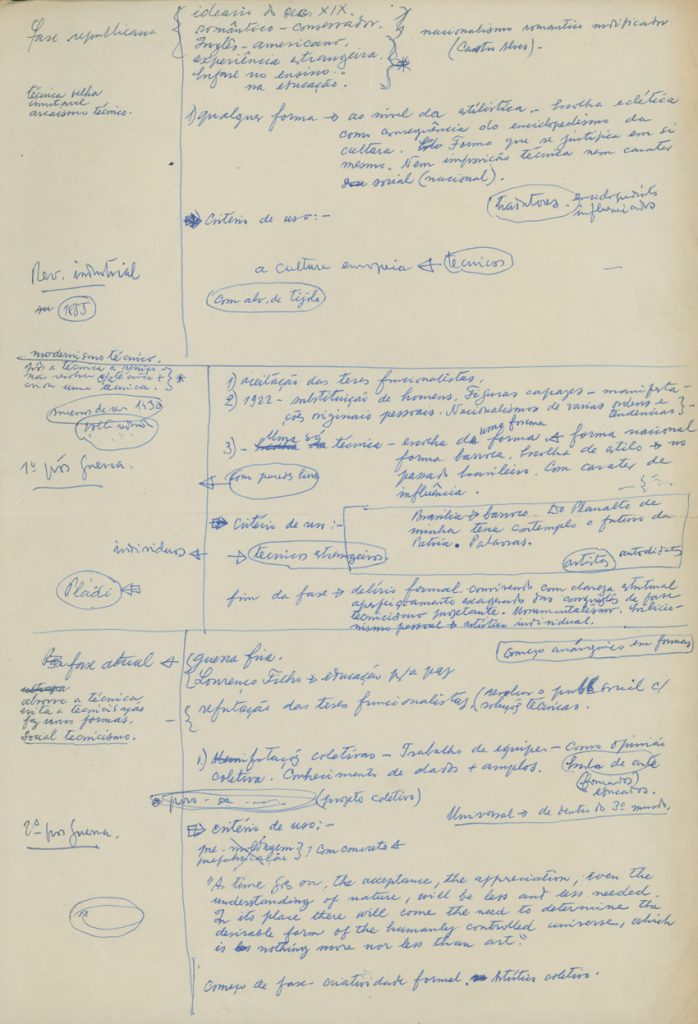 Fase republicana
ideario do sec. XIX.
romântico - conservador.
Inglês - americano.
experiência estrangeira.
Enfase no ensino -
na educação.
nacionalismo romantico modificador
(Castro Alves).
técnica velha
imutável
arcaismo técnico.
1) qualquer forma → ao nivel da estilistica - Escolha eclética
como consequência do enciclopedismo da
cultura. Forma que se justifica em si
mesmo. Nem imposição técnica nem carater
social (nacional).
tradutores - enciclopedistas
influenciados
Critério de uso:-
Rev. industrial
1885
a cultura europeia ← tecnicos
com alv. de tijolo
modernismo técnico.
pôs a técnica a serviço e
não
criou uma técnica.
1930
1) aceitação das teses funcionalistas.
2) 1922 - substituição de homens. Figuras capazes - manifesta-
ções originais pessoais. Nacionalismos de varias ordens e
tendencias
3) - Uma só técnica - escolha de uma forma ← forma nacional
forma barroca. Escolha de estilo → no
passado brasileiro. Com carater de
influência.
1º pós guerra.
com poucos
Critério de uso:-
Brasilia → barroco. Do Planalto de
minha terra contemplo o futuro da
Patria. Palavras.
individuos ←
→ tecnicos estrangeiros
artistas autodidatas
Pládi
fim da fase → delirio formal convivendo com clareza estrutural
aperfeiçoamento exagerado das conquistas da fase
tecnicismo projetante. Monumentalismo.
pessoal → artistico individual.
começo anárquico em formas
fase atual ←
guerra fria.
Lourenço Filho → educação p/a paz
absorve a técnica
evita a tecnicisação
faz novas formas.
Social tecnicismo.
refutação das teses funcionalistas (resolver o social c/
soluções técnicas.
1) Manifestações coletivas - Trabalho de equipes - como opinião
coletiva. Conhecimento de dados + amplos.
(formados)
educados.
povo - se
(projeto coletivo)
Universal → de dentro do 3º mundo.
2º pos guerra.
critério de uso:-
pre-moldagem
prefabricação } ? com concreto ←
"A time goes on, the acceptance, the appreciation, even the
understanding of nature, will be less and less needed.
In its place there will come the need to determine the
desirable form of the humanly controlled universe, which
is nothing more nor less than art."
começo de fase - criatividade formal. Artistico coletivo.